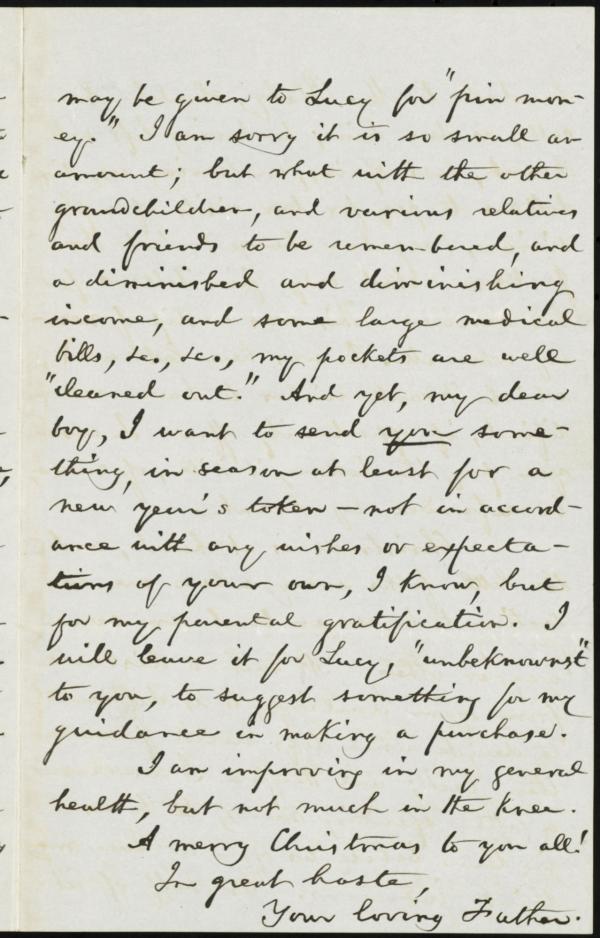 may be given to Lucy for "pin mon-
ey." I am sorry it is so small an
amount; but what with the other
grandchildren, and various relatives
and friends to be remembered, and
a diminished and diminishing
income, and some large medical
bills, &c., &c., my pockets are well
"cleaned out." And yet, my dear
boy, I want to send you some-
thing, in season at least for a
new year's token — not in accord-
ance with any wishes or expecta-
tions of your own, I know, but
for my parental gratification. I
will leave it for Lucy, "unbeknownst"
to you, to suggest something for my
guidance in making a purchase.
I am improving in my general
health, but not much in the knee.
A merry Christmas to you all!
In great haste,
Your loving Father.